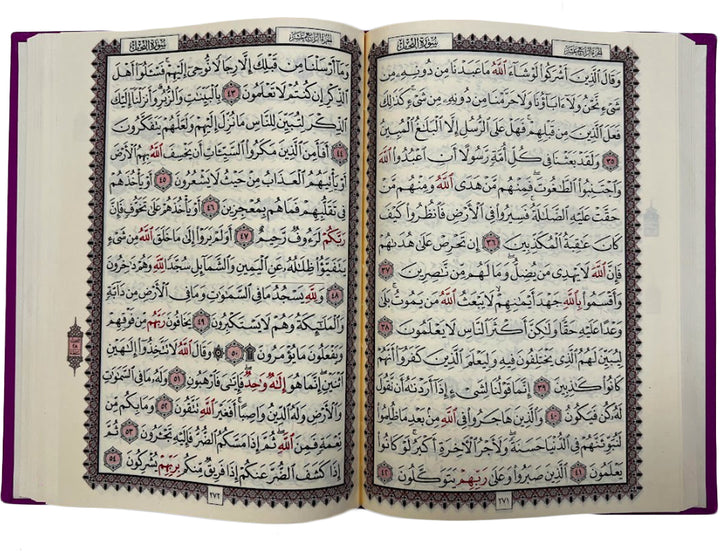 سورة النحل
الجزء الرابع عشر
وَقَالَ الَّذِينَ أَشْرَكُوا لَوْ شَاءَ اللَّهُ مَا عَبَدْنَا مِن دُونِهِ مِن
شَيْءٍ نَّحْنُ وَلَا ءَابَاؤُنَا وَلَا حَرَّمْنَا مِن دُونِهِ مِن شَيْءٍ كَذَٰلِكَ
فَعَلَ الَّذِينَ مِن قَبْلِهِمْ فَهَلْ عَلَى الرُّسُلِ إِلَّا الْبَلَٰغُ الْمُبِينُ
٣٥ وَلَقَدْ بَعَثْنَا فِي كُلِّ أُمَّةٍ رَّسُولًا أَنِ اعْبُدُوا اللَّهَ
وَاجْتَنِبُوا الطَّٰغُوتَ فَمِنْهُم مَّنْ هَدَى اللَّهُ وَمِنْهُم مَّنْ
حَقَّتْ عَلَيْهِ الضَّلَٰلَةُ فَسِيرُوا فِي الْأَرْضِ فَانظُرُوا كَيْفَ
كَانَ عَٰقِبَةُ الْمُكَذِّبِينَ ٣٦ إِن تَحْرِصْ عَلَىٰ هُدَىٰهُمْ
فَإِنَّ اللَّهَ لَا يَهْدِي مَن يُضِلُّ وَمَا لَهُم مِّن نَّٰصِرِينَ ٣٧
وَأَقْسَمُوا بِاللَّهِ جَهْدَ أَيْمَٰنِهِمْ لَا يَبْعَثُ اللَّهُ مَن يَمُوتُ بَلَىٰ
وَعْدًا عَلَيْهِ حَقًّا وَلَٰكِنَّ أَكْثَرَ النَّاسِ لَا يَعْلَمُونَ ٣٨
لِيُبَيِّنَ لَهُمُ الَّذِي يَخْتَلِفُونَ فِيهِ وَلِيَعْلَمَ الَّذِينَ كَفَرُوا أَنَّهُمْ
كَانُوا كَٰذِبِينَ ٣٩ إِنَّمَا قَوْلُنَا لِشَيْءٍ إِذَا أَرَدْنَٰهُ أَن نَّقُولَ
لَهُ كُن فَيَكُونُ ٤٠ وَالَّذِينَ هَاجَرُوا فِي اللَّهِ مِن بَعْدِ مَا ظُلِمُوا
لَنُبَوِّئَنَّهُمْ فِي الدُّنْيَا حَسَنَةً وَلَأَجْرُ الْءَاخِرَةِ أَكْبَرُ لَوْ كَانُوا
يَعْلَمُونَ ٤١ الَّذِينَ صَبَرُوا وَعَلَىٰ رَبِّهِمْ يَتَوَكَّلُونَ ٤٢
٢٧١
سورة النحل
الجزء الرابع عشر
وَمَا أَرْسَلْنَا مِن قَبْلِكَ إِلَّا رِجَالًا نُّوحِي إِلَيْهِمْ فَسْـَٔلُوا أَهْلَ
الذِّكْرِ إِن كُنتُمْ لَا تَعْلَمُونَ ٤٣ بِالْبَيِّنَٰتِ وَالزُّبُرِ وَأَنزَلْنَا إِلَيْكَ
الذِّكْرَ لِتُبَيِّنَ لِلنَّاسِ مَا نُزِّلَ إِلَيْهِمْ وَلَعَلَّهُمْ يَتَفَكَّرُونَ
٤٤ أَفَأَمِنَ الَّذِينَ مَكَرُوا السَّيِّـَٔاتِ أَن يَخْسِفَ اللَّهُ بِهِمُ الْأَرْضَ
أَوْ يَأْتِيَهُمُ الْعَذَابُ مِنْ حَيْثُ لَا يَشْعُرُونَ ٤٥ أَوْ يَأْخُذَهُمْ
فِي تَقَلُّبِهِمْ فَمَا هُم بِمُعْجِزِينَ ٤٦ أَوْ يَأْخُذَهُمْ عَلَىٰ تَخَوُّفٍ فَإِنَّ
رَبَّكُمْ لَرَءُوفٌ رَّحِيمٌ ٤٧ أَوَلَمْ يَرَوْا إِلَىٰ مَا خَلَقَ اللَّهُ مِن شَيْءٍ
يَتَفَيَّؤُا ظِلَٰلُهُ عَنِ الْيَمِينِ وَالشَّمَائِلِ سُجَّدًا لِّلَّهِ وَهُمْ دَٰخِرُونَ
٤٨ وَلِلَّهِ يَسْجُدُ مَا فِي السَّمَٰوَٰتِ وَمَا فِي الْأَرْضِ مِن دَابَّةٍ
وَالْمَلَٰئِكَةُ وَهُمْ لَا يَسْتَكْبِرُونَ ٤٩ يَخَافُونَ رَبَّهُم مِّن فَوْقِهِمْ
وَيَفْعَلُونَ مَا يُؤْمَرُونَ ۩ ٥٠ ۞ وَقَالَ اللَّهُ لَا تَتَّخِذُوا إِلَٰهَيْنِ
اثْنَيْنِ إِنَّمَا هُوَ إِلَٰهٌ وَٰحِدٌ فَإِيَّٰيَ فَارْهَبُونِ ٥١ وَلَهُ مَا فِي السَّمَٰوَٰتِ
وَالْأَرْضِ وَلَهُ الدِّينُ وَاصِبًا أَفَغَيْرَ اللَّهِ تَتَّقُونَ ٥٢ وَمَا بِكُم مِّن
نِّعْمَةٍ فَمِنَ اللَّهِ ثُمَّ إِذَا مَسَّكُمُ الضُّرُّ فَإِلَيْهِ تَجْـَٔرُونَ ٥٣ ثُمَّ
إِذَا كَشَفَ الضُّرَّ عَنكُمْ إِذَا فَرِيقٌ مِّنكُم بِرَبِّهِمْ يُشْرِكُونَ ٥٤
٢٧٢